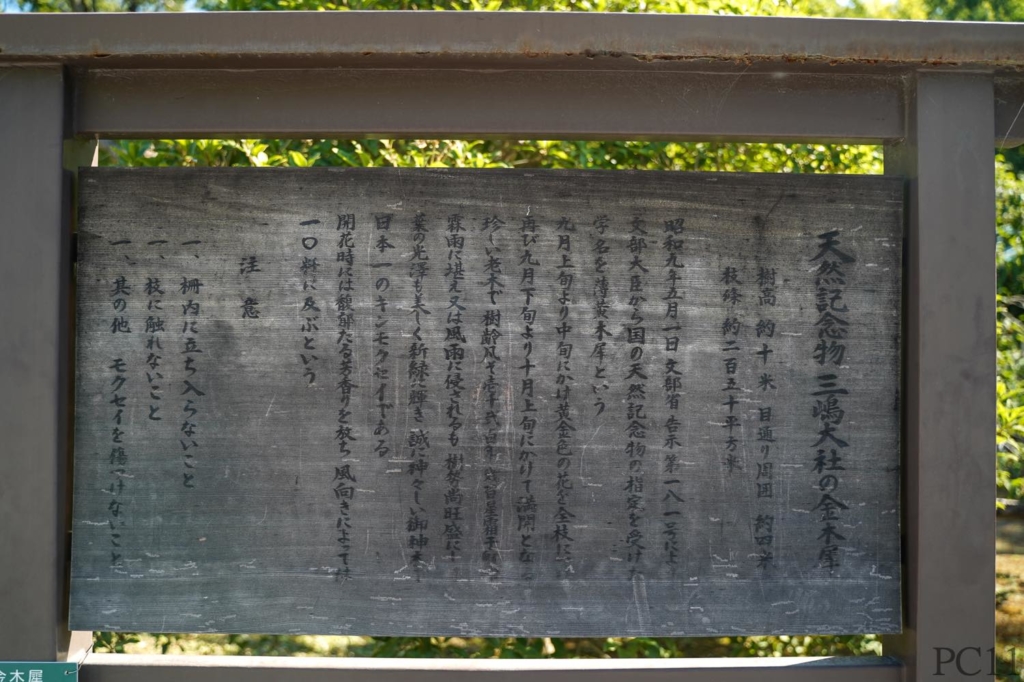 天然記念物 三嶋大社の金木犀
樹高 約十米 目通り周囲 約四米
枝條 約二百五十平方米
昭和九年五月一日文部省告示第一八一号により
文部大臣から国の天然記念物の指定を受けた
学名を薄黄木犀という
九月上旬より中旬にかけ黄金色の花を全枝につけ
再び九月下旬より十月上旬にかけて満開となる
珍しい老木で樹齢凡そ壱千弐百年
霖雨に堪え又は風雨に侵されるも樹勢尚旺盛に
葉の光澤も美しく新緑に輝き誠に神々しい御神木
日本一のキンモクセイである
開花時には馥郁たる芳香りを放ち風向きによって
一〇粁に及ぶという
注意
一、柵内に立ち入らないこと
一、枝に触れないこと
一、其の他 モクセイを傷つけないこと
金木犀
PC11